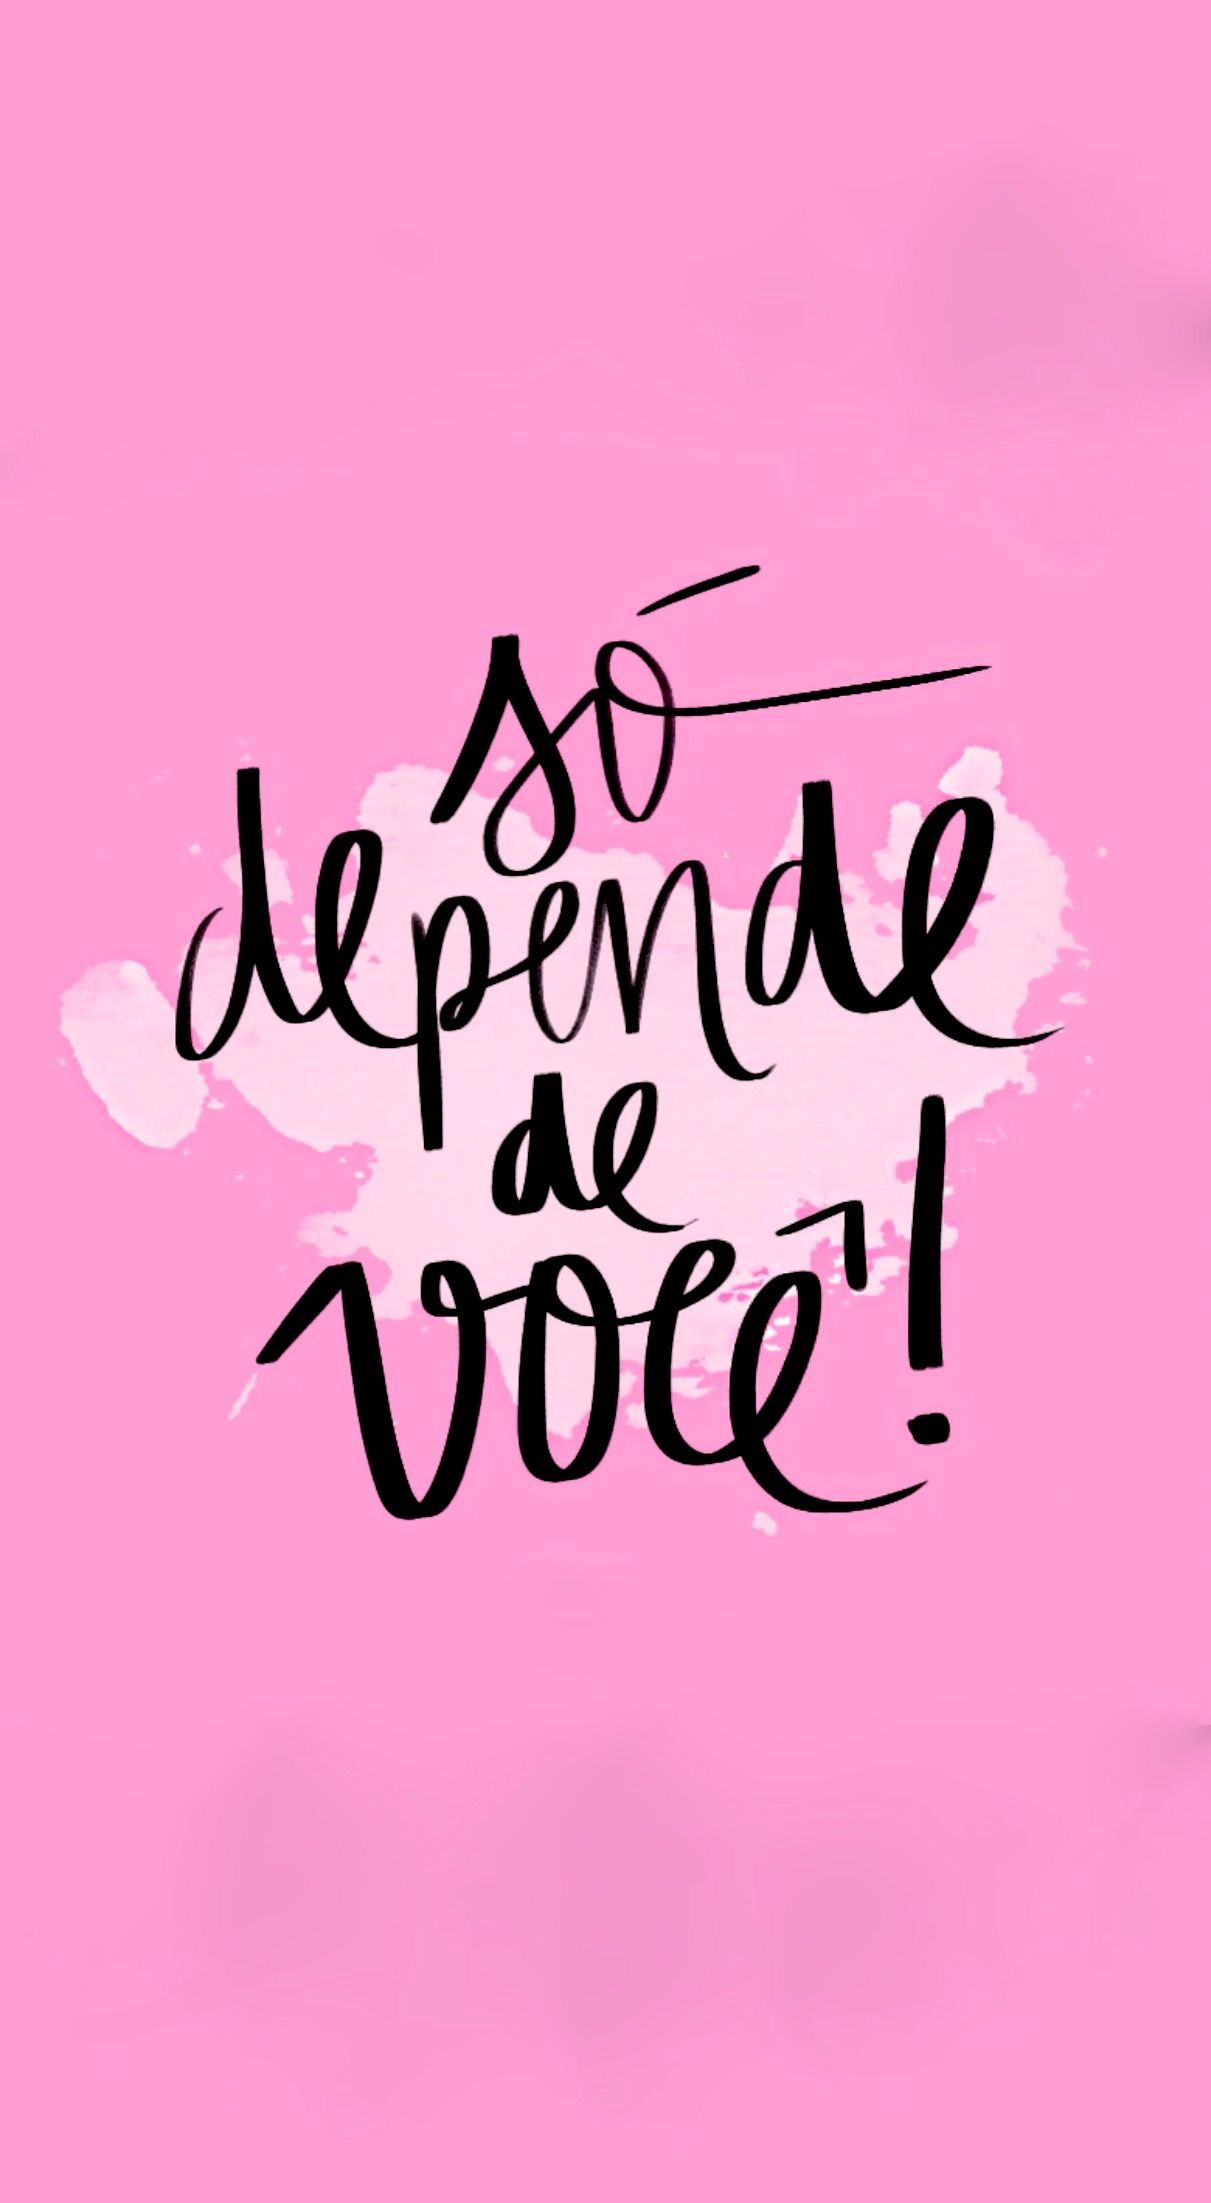 só
depende
de
você!